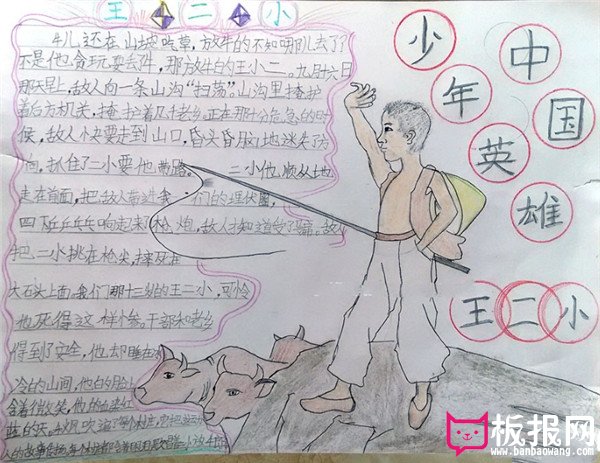 王二小
牛儿还在山坡吃草，放牛的不知哪儿去了？
不是他贪玩耍丢牛，那放牛的王小二。九月十六日
那天早上，敌人向一条山沟“扫荡”，山沟里掩护
着后方机关，掩护着几千老乡。正在那十分危急的时
候，敌人快要走到山口，昏头昏脑地迷失了方
向，抓住了二小要他带路。二小他顺从地
走在前面，把敌人带进我们的埋伏圈，
四下乒乒乓乓响起来了枪炮，敌人才知道受了骗。敌人
把二小挑在枪尖，摔死在
大石头上面，我们那十三岁的王二小，可怜
他死得这样惨。干部和老乡
得到了安全，他却睡在
冷的山间，他的脸上
含着微笑，他的血染红
蓝的天。秋风吹遍了
人的故事
少年英雄
中国
王二小
板报网
www.banbaowang.com